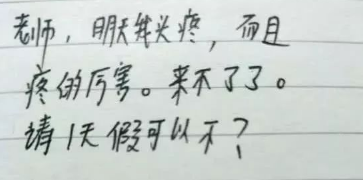 老师，明天我头疼，而且
疼的厉害。来不了了。
请1天假可以不？